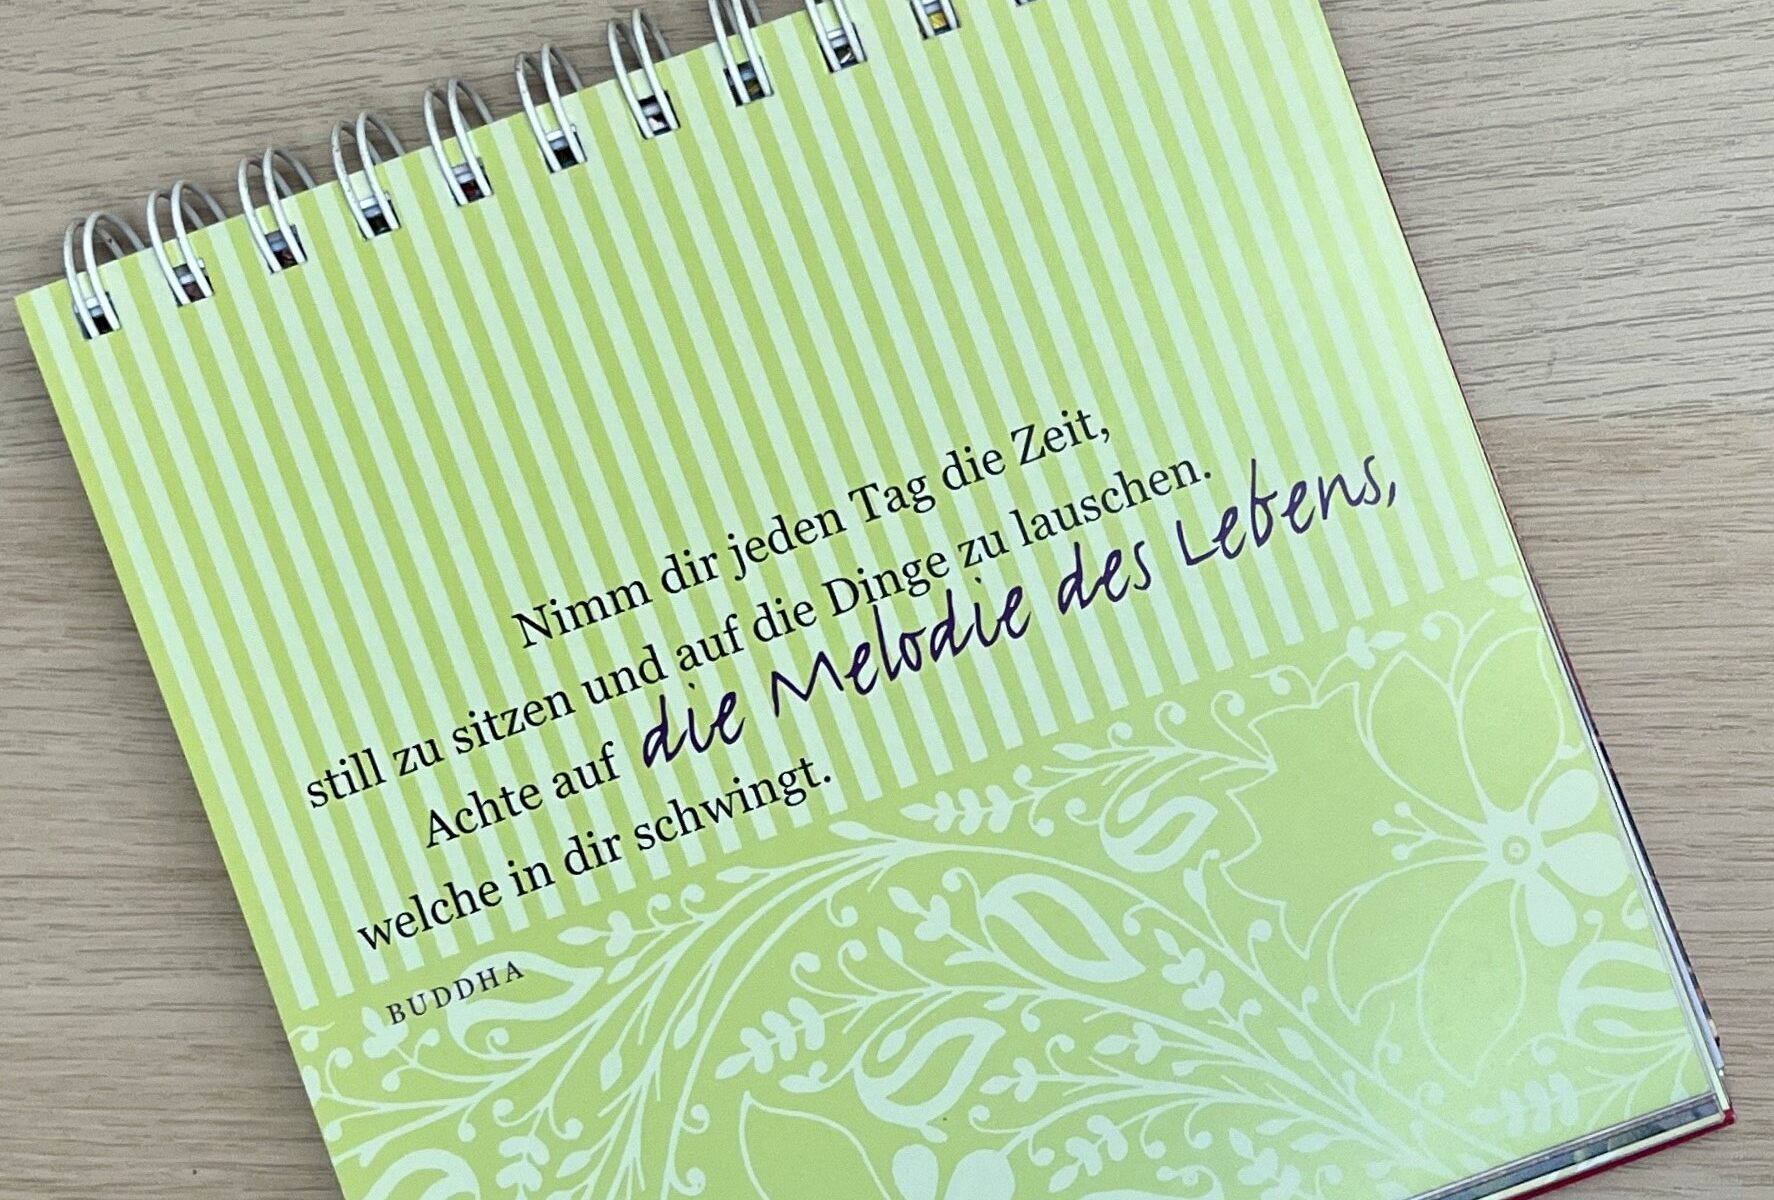 Nimm dir jeden Tag die Zeit,
still zu sitzen und auf die Dinge zu lauschen.
Achte auf die Melodie des Lebens,
welche in dir schwingt.
BUDDHA